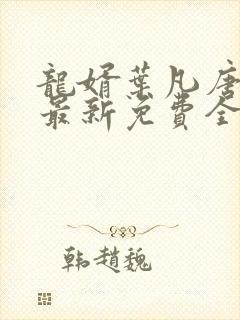 龍婿葉凡唐
最新免費全
韩趙魏